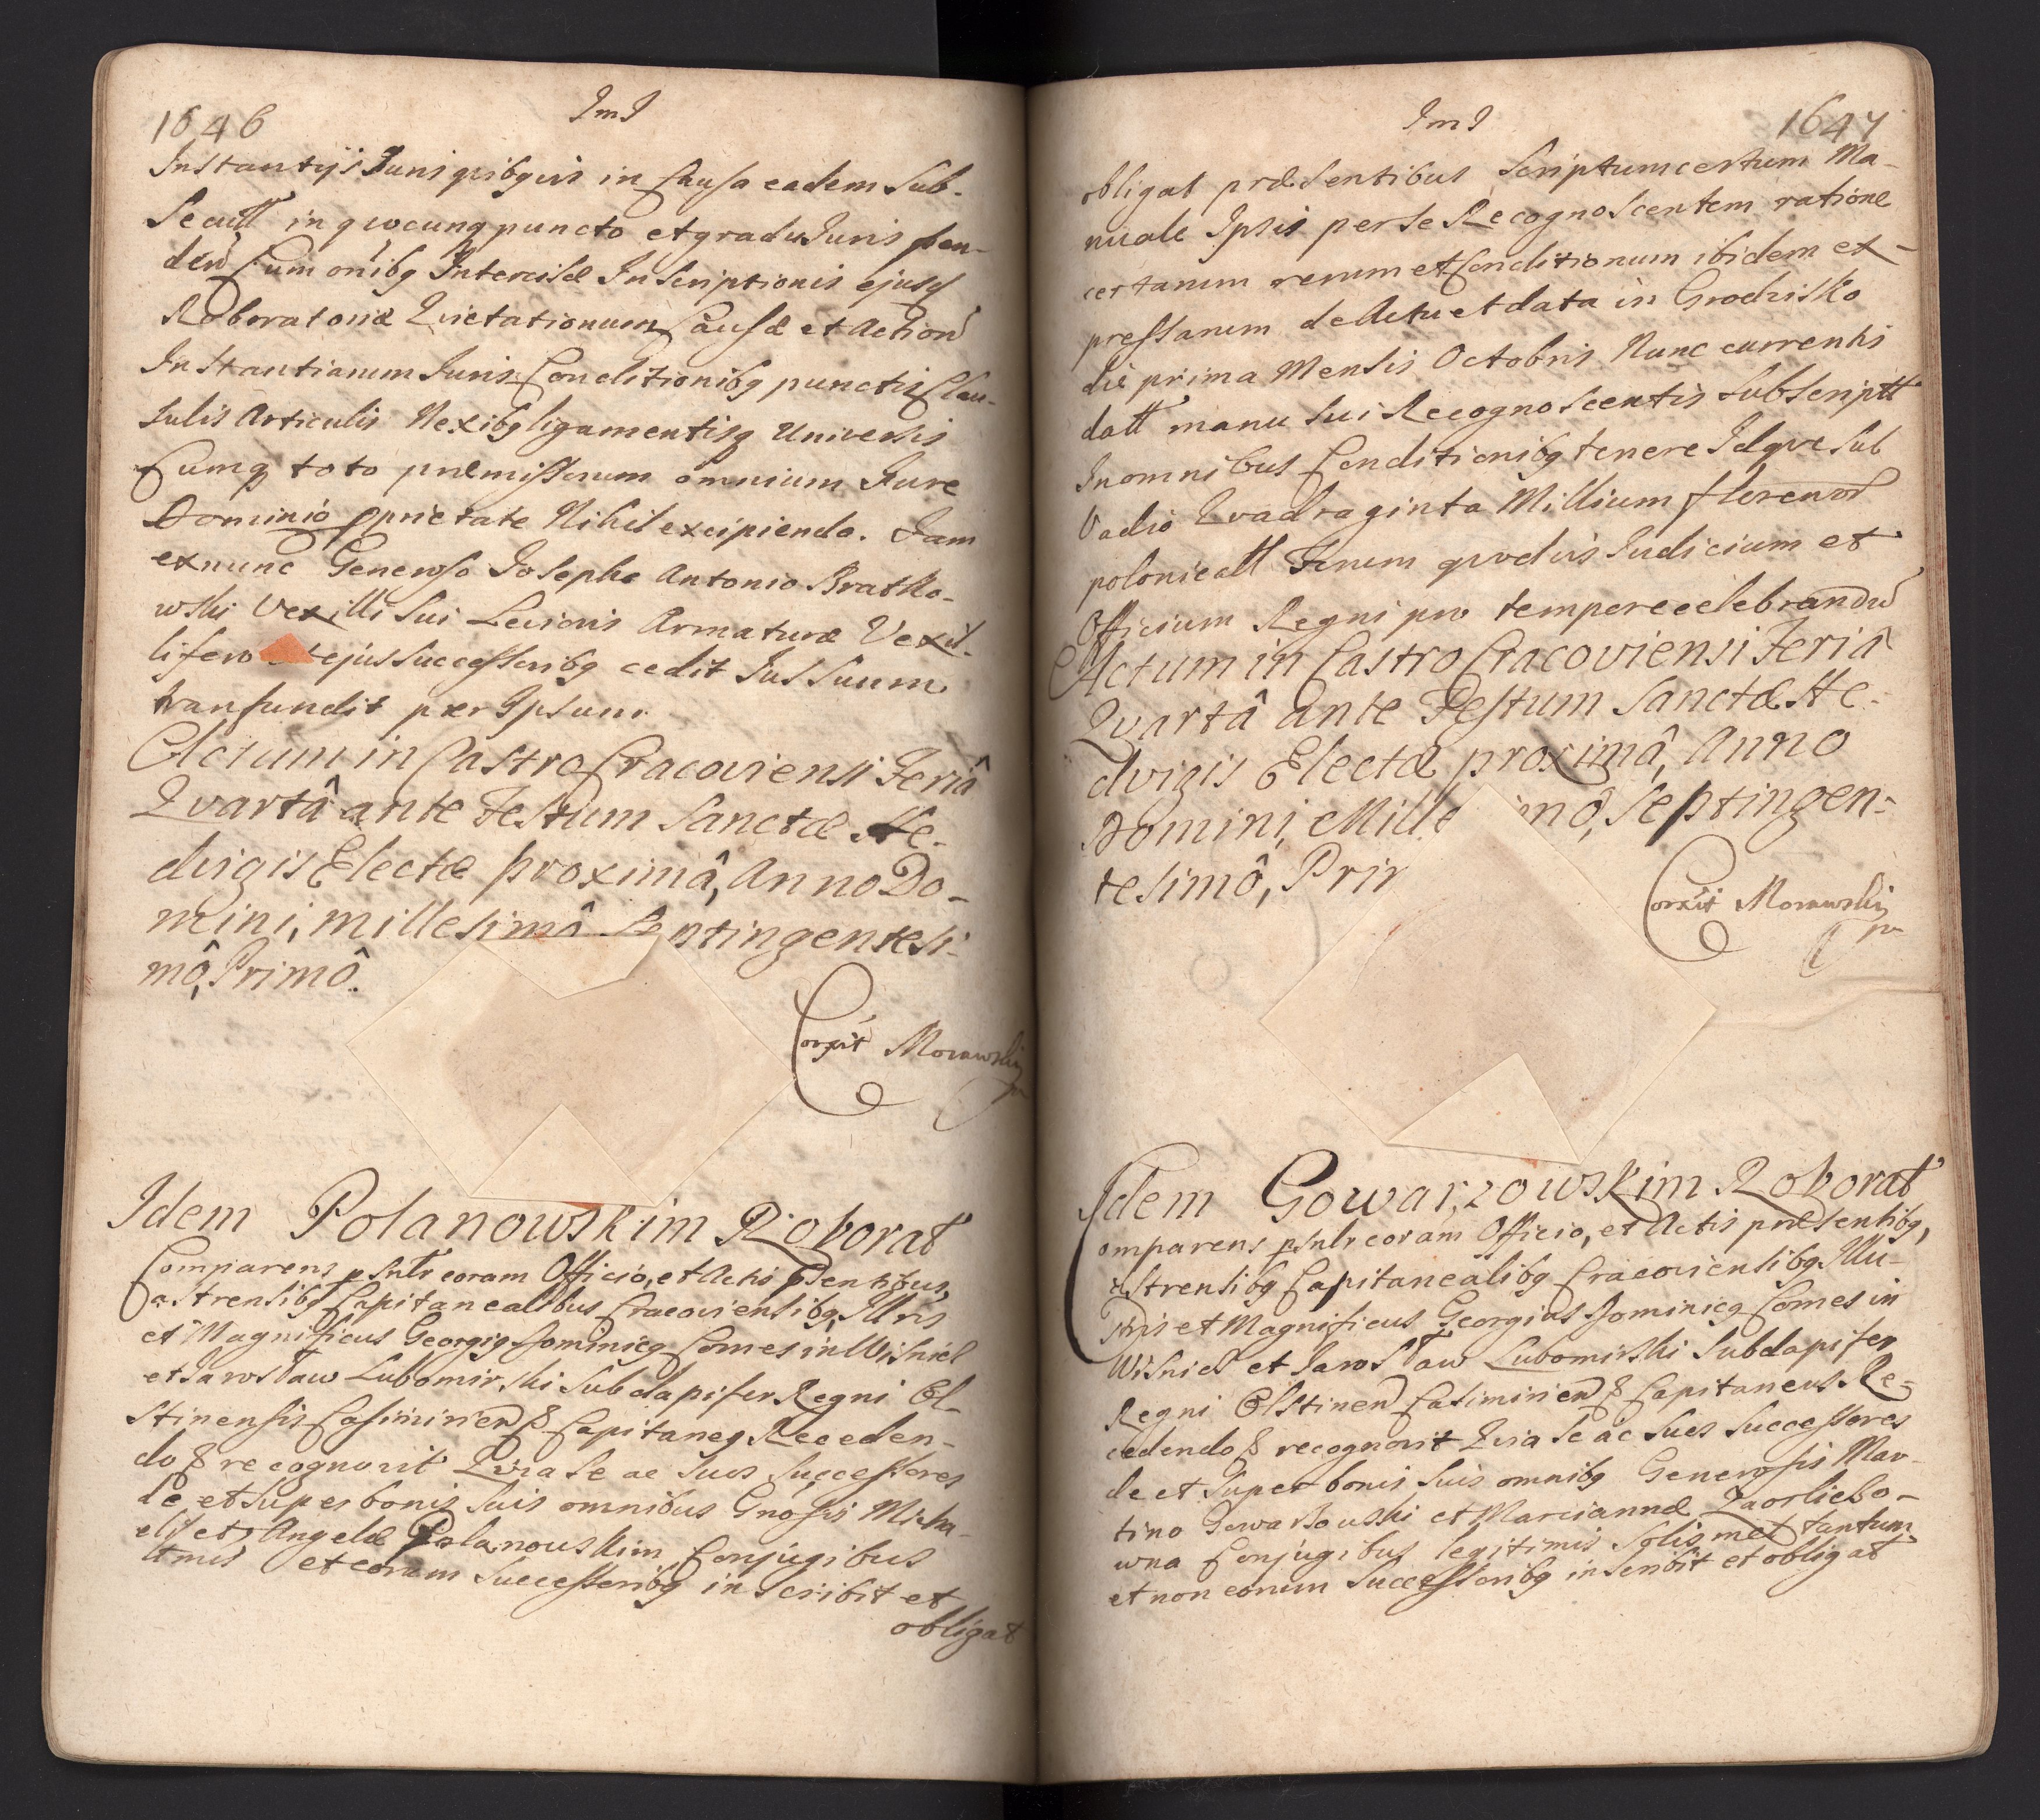 1646
ImI
Instantijs Juris qvibusvis in Causa eadem Sub-
Secutt in qvocunq puncto et gradu Juris pen-
den Cum onibq Intercisæ Inscriptionis ejusq
Roboratoriæ Qvietationum Causæ et Action
Instantiarum Juris Conditionibq punctis Clau-
sulis Articulis Nexibq ligamentisq Universis
Cumq toto præmissorum omnium Jure
Dominio pprietate Nihil excipiendo. Jam
exnunc Generoso Josepho Antonio Bratko-
wski Vexilli Sui Levioris Armaturæ Vexil-
lifero ejus successoribq cedit Jus Suum
transfundit per Ipsum
Actum in Castro Cracoviensi Feriâ
Qvartâ ante Festum Sanctæ He-
dvigis Electæ proximâ, Anno Do-
mini, millesimô Septingentesi-
mô, Primô.
Corxit Morawski
Idem Polanowskim Roborat
Comparens psntr coram Officio, et Actis psentibus,
astrensibq Capitanealibus Cracoviensibq, Illris
et Magnificus Georgiq Dominicq Comes in Wisnicz
et Jarosław Lubomirski Subdapifer Regni Ol-
stinensis Casimirien & Capitaneq Receden-
do & recognovit Qvia Se ac Suos Successores
de et super bonis Suis omnibus Gnosis Micha-
eli et Angelæ Polanouskim Conjugibus
ltmis et eorum Successoribq inscribit et
obligat
ImI
1647
obligat præsentibus Scriptum certum Ma-
nuale Ipsis per Se Recognoscentem ratione
certarum rerum et Conditionum ibidem ex-
pressarum de Actu et data in Grodzisko
die prima Mensis Octobris Nunc currentis
datt manu Sui Recognoscentis Subscriptt
In omnibus Conditionibq tenere Idqve Sub
Vadio Qvadraginta Millium florenor
polonicall Forum qvodvis Judicium et
Officium Regni pro tempore celebrandu
Actum in Castro Cracoviensi Feriâ
Qvartâ ante Festum Sanctæ He-
dvigis Electæ proximâ, Anno
Domini, Mill mô, Septingen-
tesimô, Prir
Corxit Morawski
Idem Gowarzowskim Roborat
omparens psntr coram Officio, et Actis præsentibq,
astrensibq Capitanealibq Cracoviensibq Illu-
stris et Magnificus Georgius Dominicq Comes in
Wisnicz et Jarosław Lubomirski Subdapifer
Regni Olstinen Casimirien & Capitaneus Re-
cedendo & recognovit Qvia Se ac Suos Successores
de et Super bonis Suis omnibq Generosis Mar-
tino Gowarzouski et Mariannæ Zaorliebo-
wna Conjugibus legitimis Solis met tantum
et non eorum Successoribq inscribit et obligat